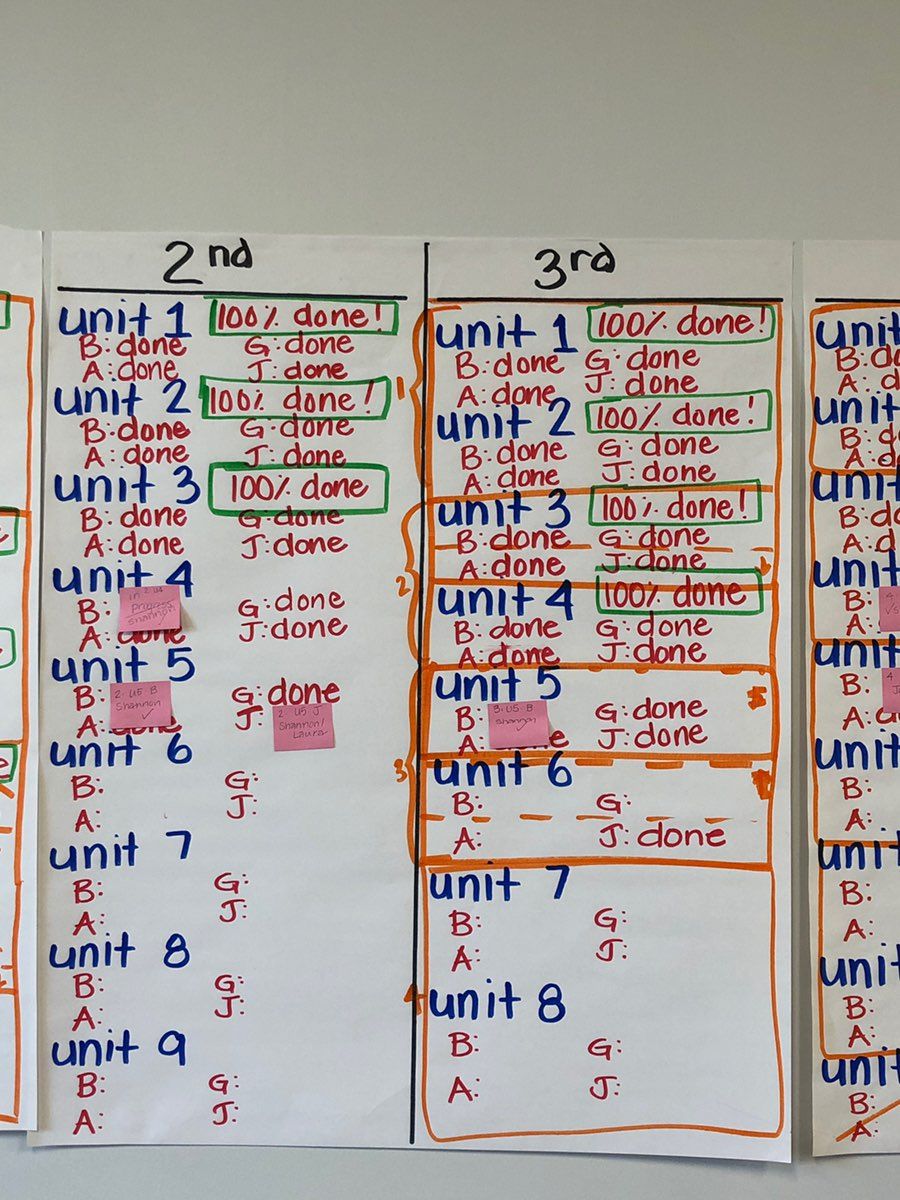 2nd
unit 1 100% done!
B: done G: done
A: done J: done
unit 2 100% done!
B: done G: done
A: done J: done
unit 3 100% done
B: done G: done
A: done J: done
unit 4
B: G: done
A: done J: done
in 2 U4
Progress
Shannon
unit 5
B: G: done
A: done J:
2. U5 B
Shannon
✓
2 U5 J
Shannon/
Laura
unit 6
B: G:
A: J:
unit 7
B: G:
A: J:
unit 8
B: G:
A: J:
unit 9
B: G:
A: J:
3rd
1
unit 1 100% done!
B: done G: done
A: done J: done
unit 2 100% done!
B: done G: done
A: done J: done
2
unit 3 100% done!
B: done G: done
A: done J: done
unit 4 100% done
B: done G: done
A: done J: done
3
unit 5
B: G: done
A: J: done
3. U5. B
Shannon
✓
unit 6
B: G:
A: J: done
4
unit 7
B: G:
A: J:
unit 8
B: G:
A: J:
unit
B: do
A: d
unit
B: d
A: d
unit
B: do
A: d
unit
B:
A:
unit
B:
A: d
unit
B:
A:
unit
B:
A:
unit
B:
A:
unit
B:
A: